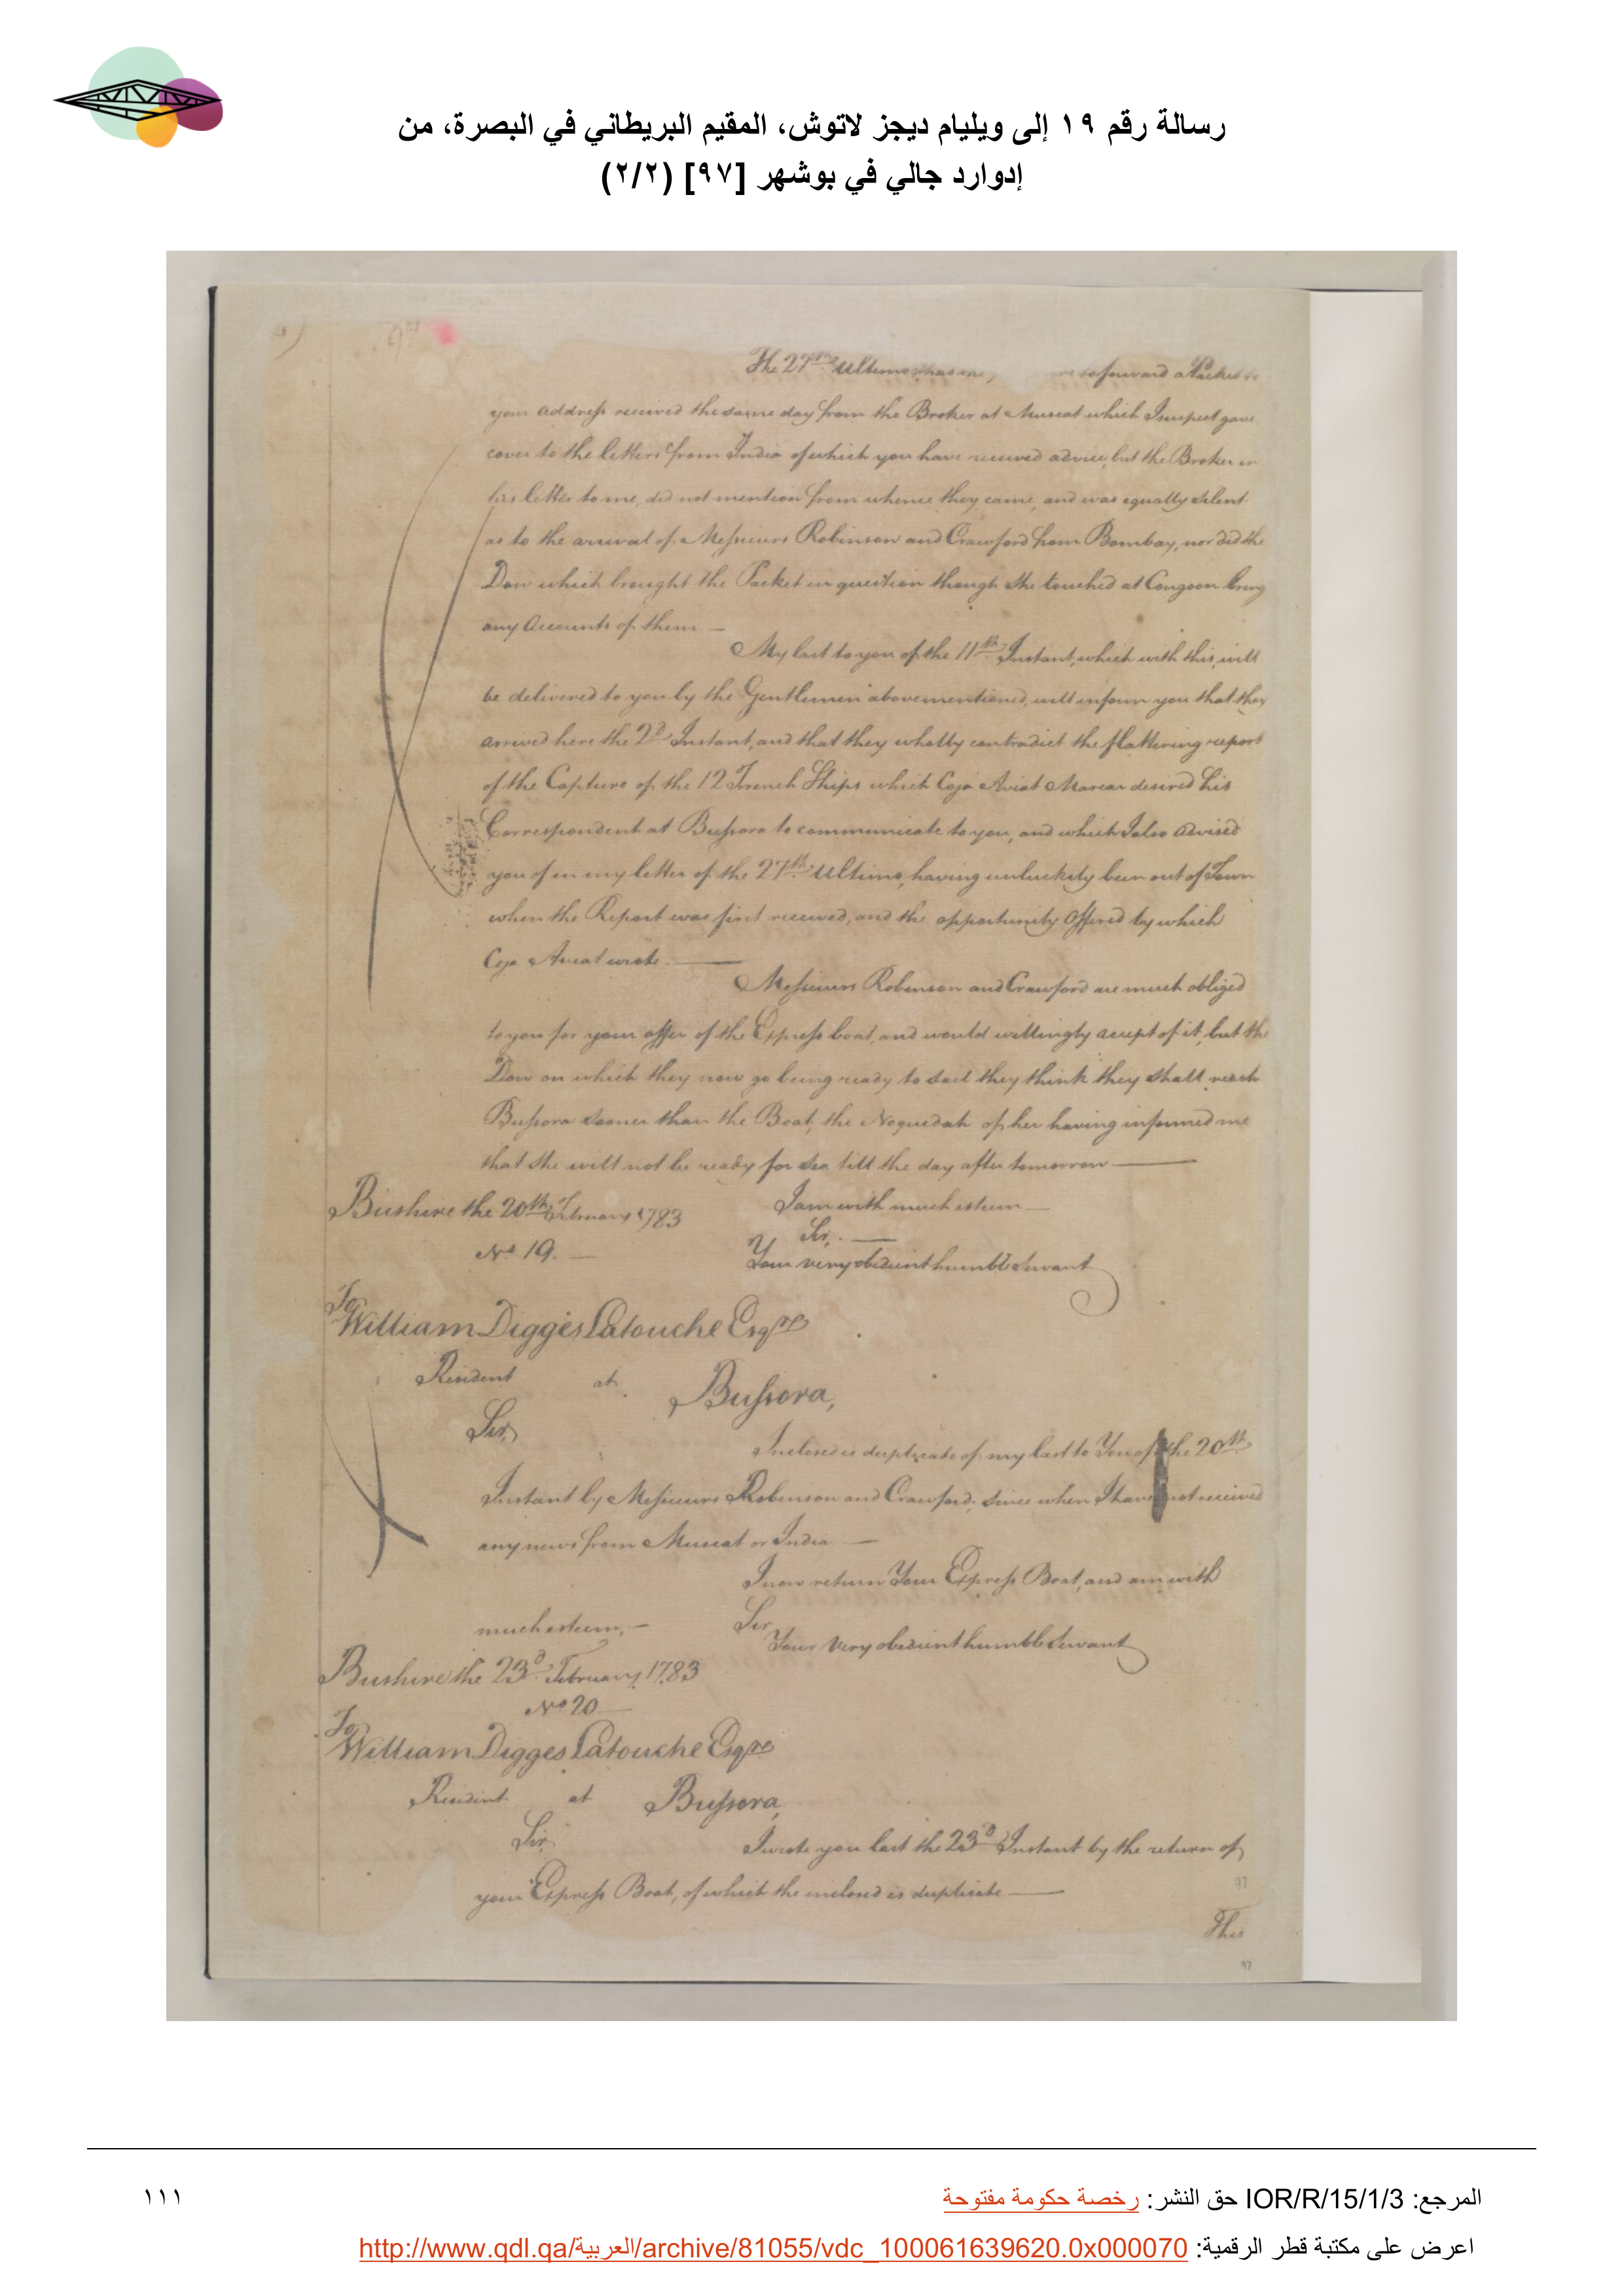 رسالة رقم ١٩ إلى ويليام ديجز لاتوش، المقيم البريطاني في البصرة، من
إدوارد جالي في بوشهر [٩٧] (٢/٢)
97
The 27th Ultimo forward a Packet to
your address received the same day from the Broker at Muscat which I suspect gave
cover to the letters from India of which you have received advice, but the Broker in
his letter to me, did not mention from whence they came, and was equally silent
as to the arrival of Messieurs Robinson and Crawford from Bombay, nor did the
Dow which brought the Packet in question though she touched at Congoon bring
any Accounts of them —
My last to you of the 11th Instant, which with this, will
be delivered to you by the Gentlemen abovementioned, will inform you that they
arrived here the 2d Instant, and that they wholly contradict the flattering report
of the Capture of the 12 French Ships which Coja Aviat Marcar desired his
Correspondent at Bussora to communicate to you, and which I also advised
you of in my letter of the 27th Ultimo, having unluckily been out of Town
when the Report was first received, and the opportunity Offered by which
Coja Aviat wrote. —
Messieurs Robinson and Crawford are much obliged
to you for your offer of the Express boat, and would willingly accept of it, but the
Dow on which they now go being ready to sail they think they shall reach
Bussora sooner than the Boat, the Noquedah of her having informed me
that she will not be ready for sea till the day after tomorrow —
Bushire the 20th February 1783 I am with much esteem —
Sir, —
No 19. — Your very obedient humble Servant
To
William Digges Latouche Esqre
Resident at Bussora,
Sir,
Inclosed is duplicate of my last to You of the 20th
Instant by Messieurs Robinson and Crawford, since when I have not received
any news from Muscat or India —
I now return Your Express Boat, and am with
much esteem, — Sir
Your very obedient humble Servant
Bushire the 23d February 1783
No 20
To
William Digges Latouche Esqre
Resident at Bussora,
Sir,
I wrote you last the 23d Instant by the return of
your Express Boat, of which the inclosed is duplicate —
97
This
97
المرجع: IOR/R/15/1/3 حق النشر: رخصة حكومة مفتوحة
١١١
اعرض على مكتبة قطر الرقمية: http://www.qdl.qa/العربية/archive/81055/vdc_100061639620.0x000070